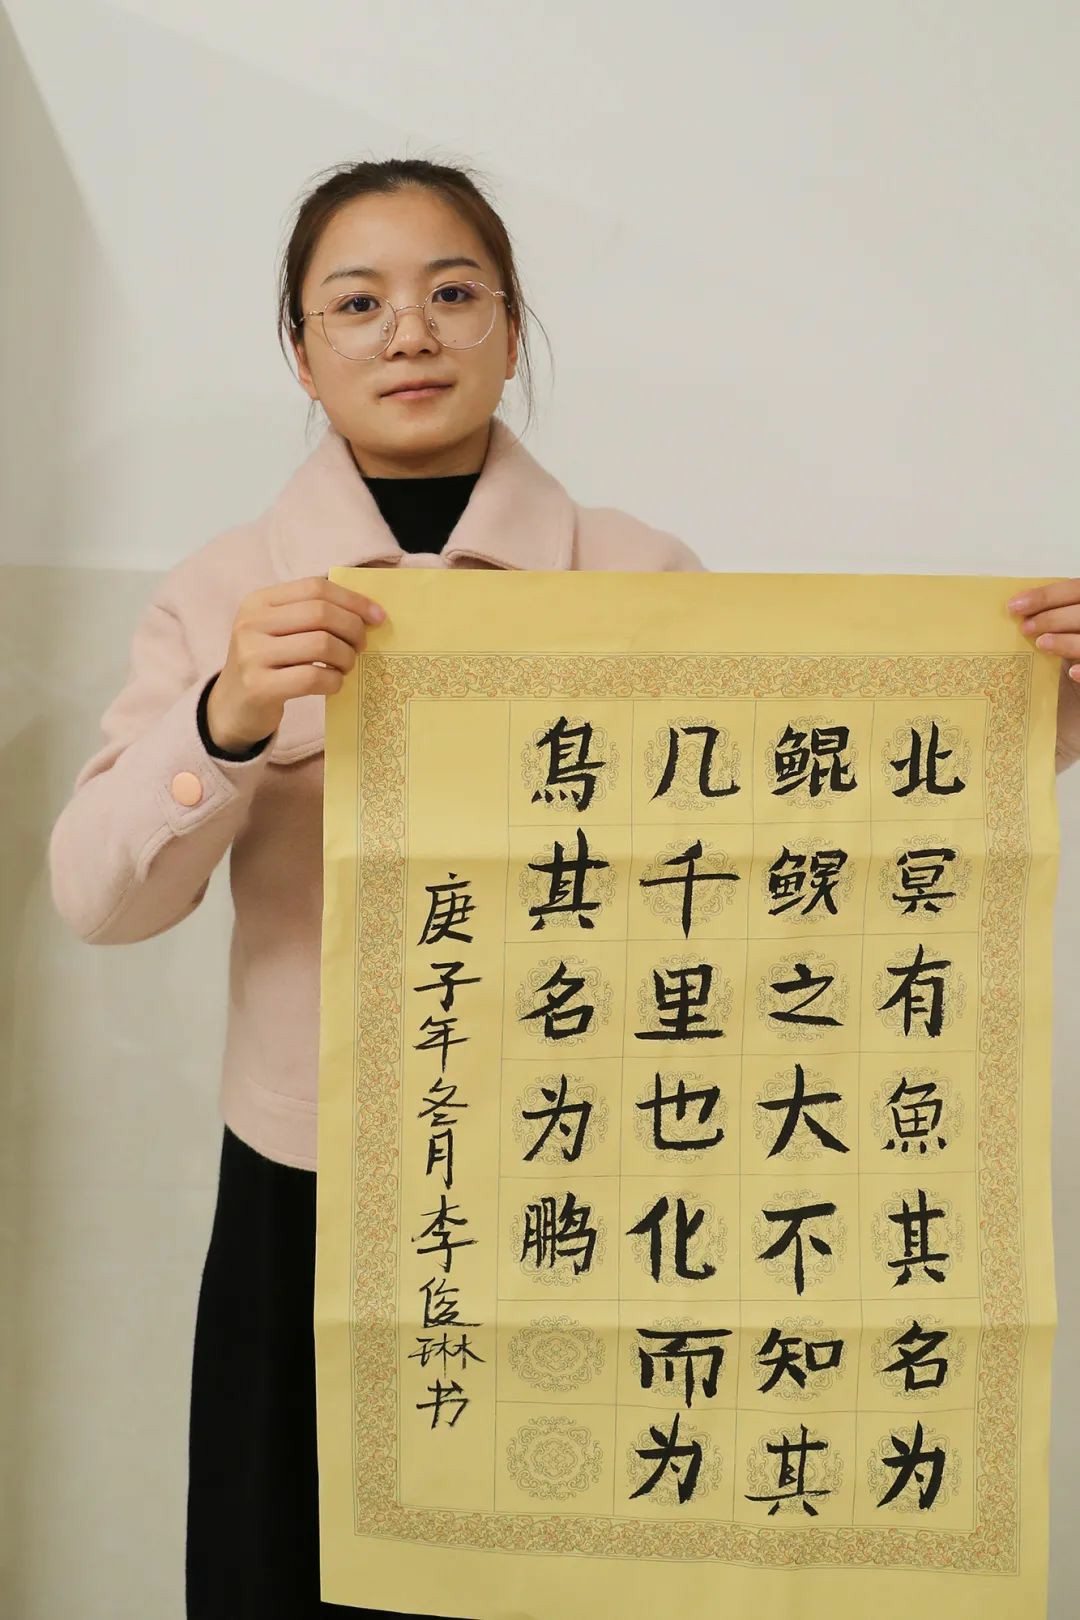 北冥有魚其名为
鲲鲲之大不知其
几千里也化而为
鳥其名为鹏
庚子年冬月李俊琳书